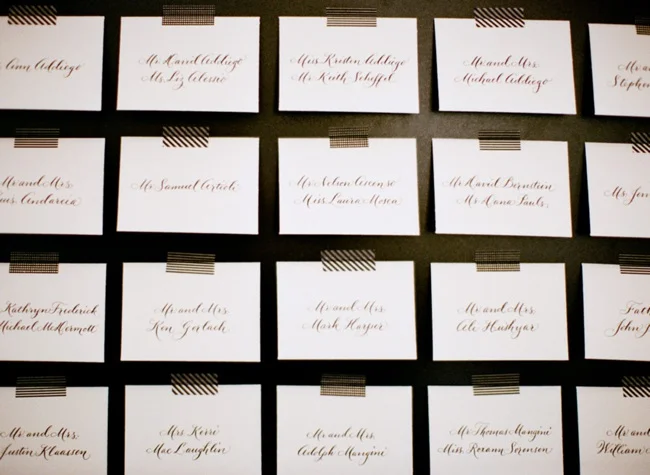 Ann Addiego
Mr. David Addiego
Ms. Liz Alessio
Miss Kristen Addiego
Mr. Keith Scheffel
Mr. and Mrs.
Michael Addiego
Mr.
Stephen
Mr. and Mrs.
Luis Andarcia
Mr. Samuel Artioli
Mr. Nelson Ascenso
Miss Laura Mosen
Mr. David Bernstein
Ms. Dana Pauls
Mr. Jon
Kathryn Frederick
Michael McDermott
Mr. and Mrs.
Ken Gerlach
Mr. and Mrs.
Mark Harper
Mr. and Mrs.
Cole Hushyar
Fat
John
Mr. and Mrs.
Justin Klaassen
Mrs. Kerri
MacLaughlin
Mr. and Mrs.
Adolph Mangini
Mr. Thomas Mangini
Miss. Roxann Sorenson
Mr. and
William